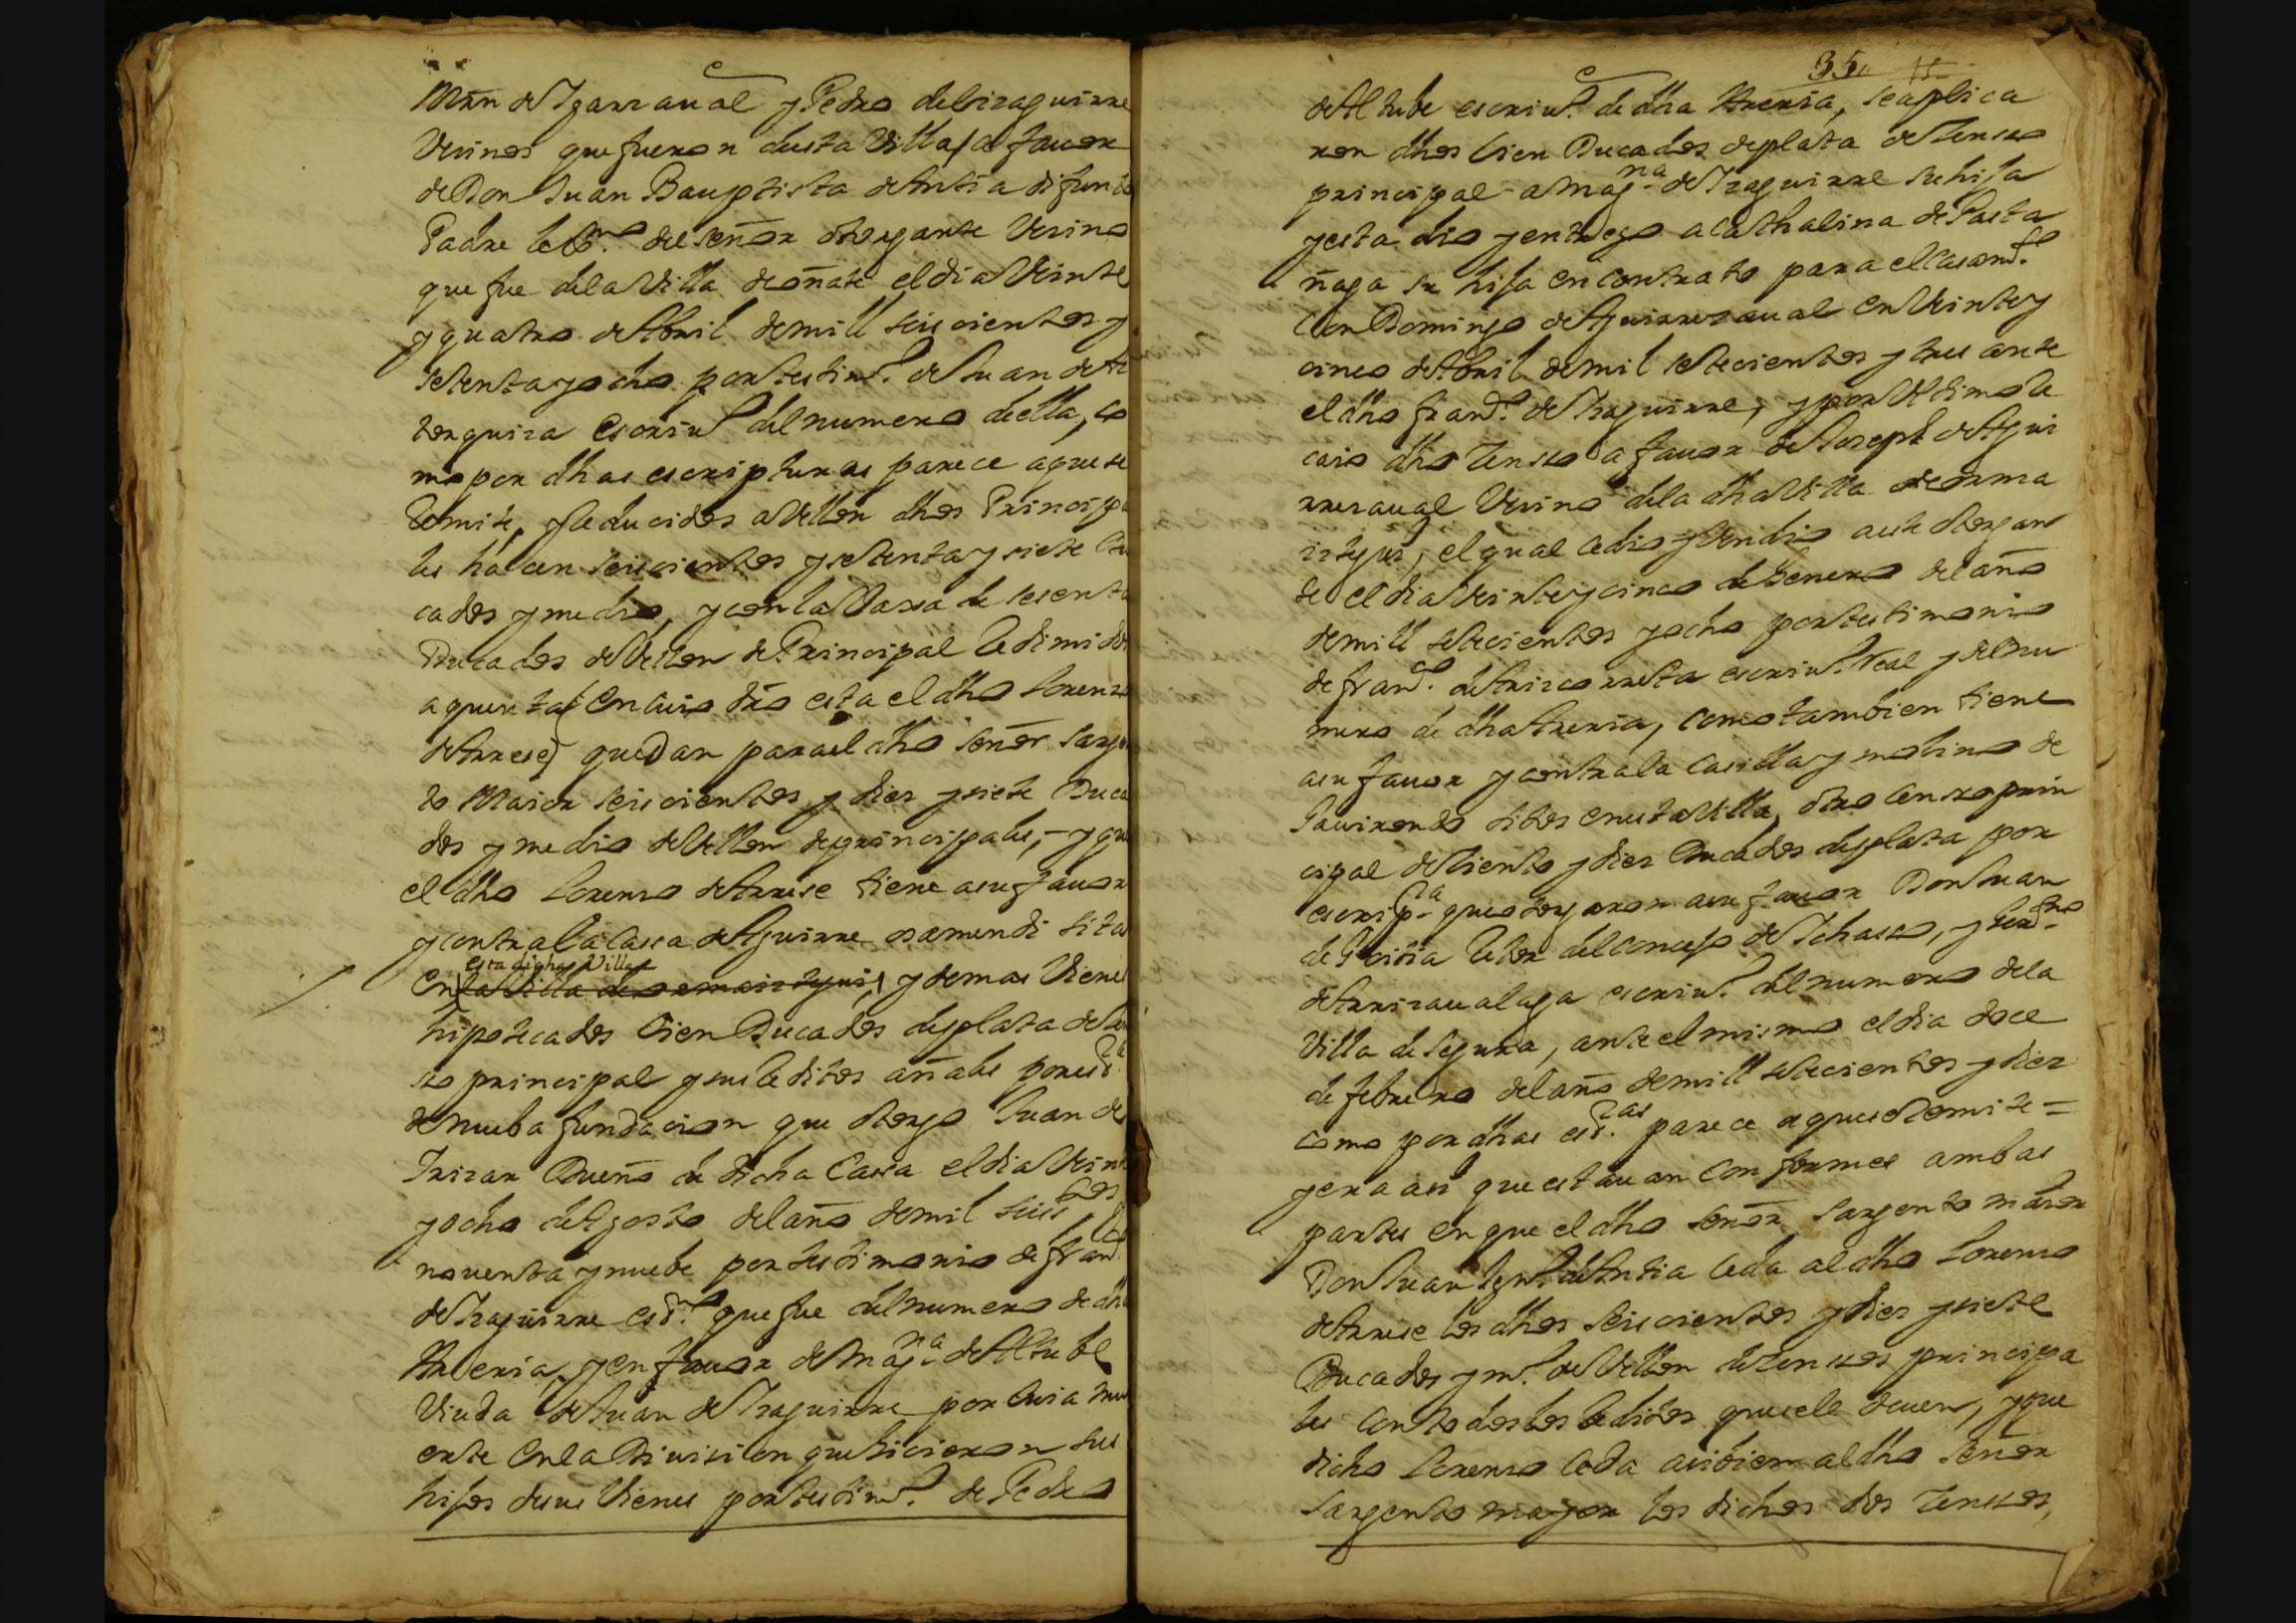 Mrn de Yzarraual y Pedro de Lizaguirre
Vecinos que fueron desta Villa, a fauor
de Don Juan Bauptista de Antia difunto
Padre lexmo. del señor otorgante Vecino
que fue dela Villa de oñate el dia Veinte
y quatro de Abril de mill seiscientos y
setenta y ocho por testimo. de Juan de
zorguiza escriuo. del numero de ella, co
mo por dhas escripturas parece aque se
Remite, y Reducidos aVellon dhos Principa
les hacen seiscientos y setenta y siete Du
cados y medio, y con la Vaxa de sesenta
Ducados de Vellon de Principal Redimidos
aquenta (en cuio dro esta el dho Lorenzo
de Arrese) quedan para el dho señor Sargen
to Maior seiscientos y diez y siete Duca
dos y medio de Vellon de principales, y que
el dho Lorenzo de Arrese tiene asu fauor
y contra la Cassa de Aguirre osamendi sita
esta digha Villa
En la Villa de ormaiztegui, y demas Vienes
hipotecados Cien Ducados de plata de
so principal y sus Reditos añales por esc.ra
de nueba fundacion que otorgo Juan de
Irizar Dueño de dicha Cassa el dia Veinte
y ocho de Agosto del año de mil seistos
nouenta y nuebe por testimonio de franco.
de Yraguirre esc.no que fue del numero de dha
Areria, y en fauor de Magna. de Altube
Viuda de Juan de Yraguirre por cuia mu
erte en la Diuision que hicieron sus
hijos desus Vienes por testimo. de Pedro
35
de Altube escriuo. de dha Areria, se aplica
ron dhos Cien Ducados de plata de Zensso
principal a Magna. de Yraguirre su hija
y esta dio y entrego a Cathalina de Pasta
ñaga su hija en contrato para el Casamto.
Con Domingo de Aguirrezaual en Veinte y
cinco de Abril de mil setecientos y tres ante
el dho franco. de Yraguirre, y por Vltimo le
caio dho Zensso a fauor de Joseph de Agui
rrezaual Vecino dela dha Villa de orma
iztegui, el qual Cedio y Vendio a este otorgan
te el dia Veinte y cinco de henero del año
de mill setecientos y ocho por testimonio
de franco. de Arizcorreta escriuo. Real y del nu
mero de dha Areria, como tambien tiene
asu fauor y contra la Cassilla y molino de
Jauirondo sitos en esta Villa, otro Censso prin
cipal de Ciento y diez Ducados de plata por
escripra. que otorgaron asu fauor Don Juan
de Retor del concejo de Ychasso, y
de Arrizaualaga escriuo. del numero dela
Villa de Segura, ante el mismo el dia doce
de febrero del año de mill setecientos y diez
como por dhas esc.ras parece aque se Remite =
y era assi que estauan Conformes ambas
partes en que el dho señor Sargento maior
Don Juan Igno. de Antia ceda al dho Lorenzo
de Arrese los dhos seiscientos y diez y siete
Ducados y mo. de Vellon de Zenssos principa
les Con todos los Reditos que se le deuen, y que
dicho Lorenzo Ceda assibien al dho señor
Sargento mayor los dichos dos Zenssos,